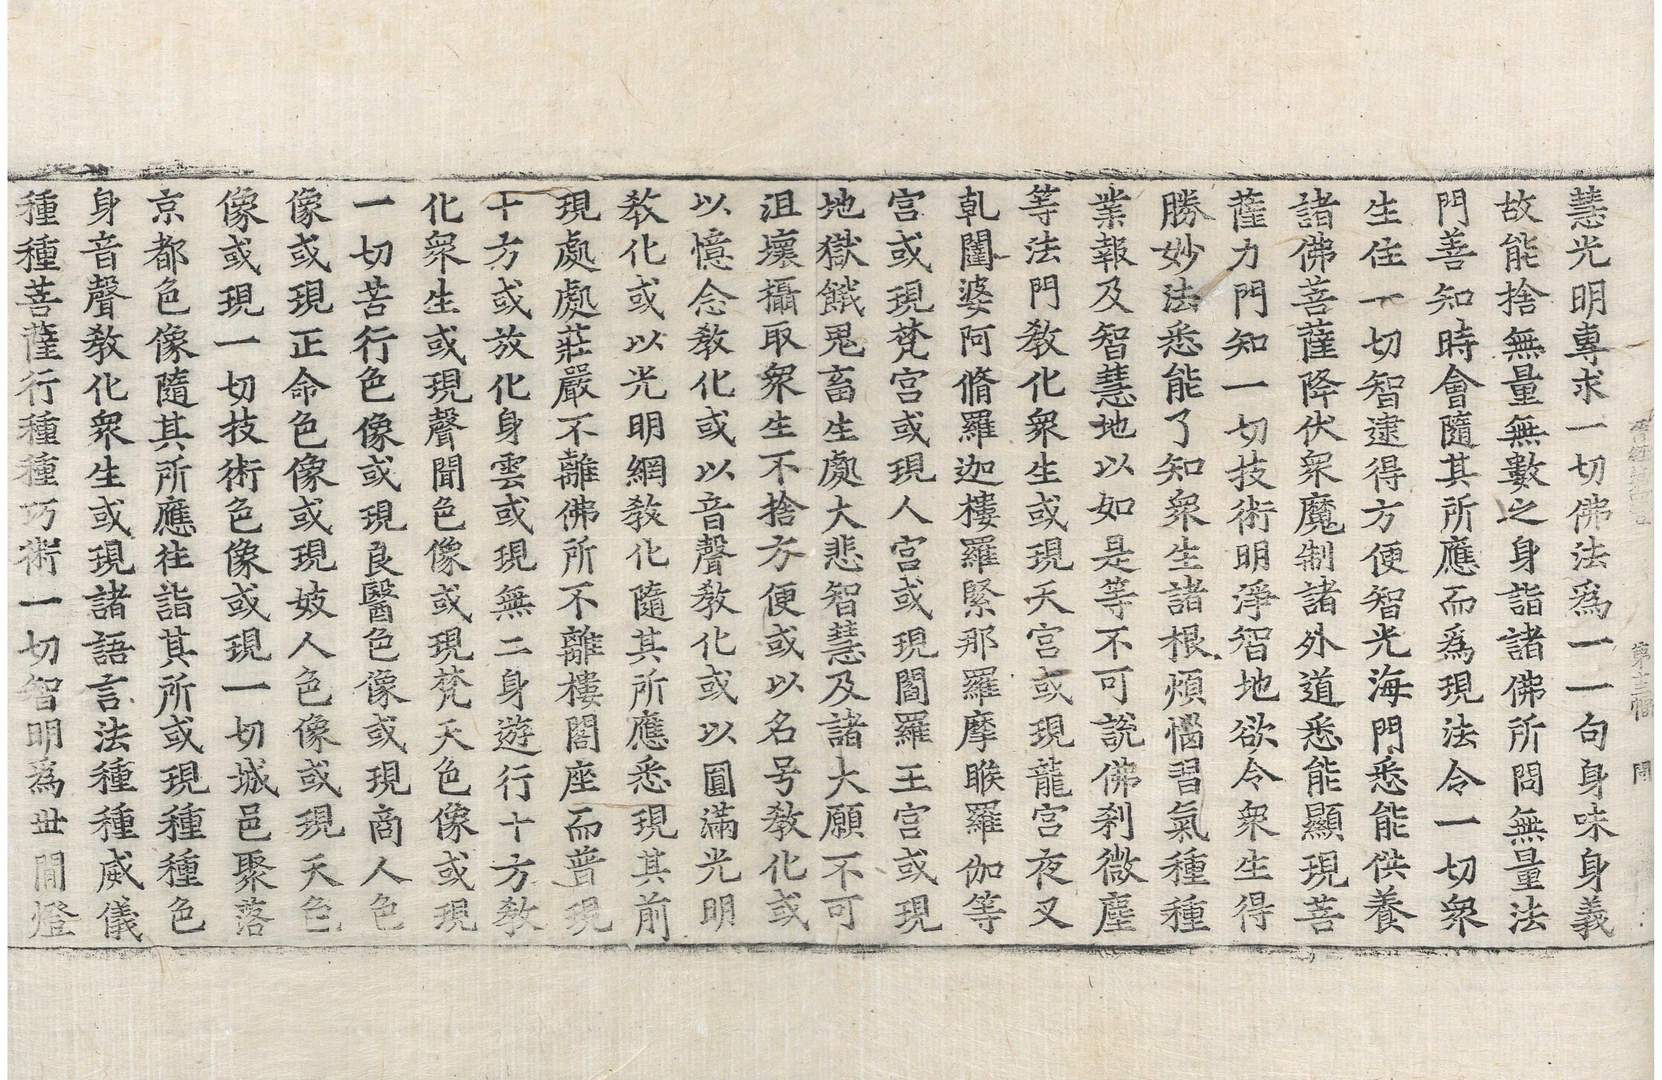 慧光明專求一切佛法為一一句身味身義
故能捨無量無數之身詣諸佛所問無量法
門善知時會隨其所應而為現法令一切衆
生住一切智逮得方便智光海門悉能供養
諸佛菩薩降伏衆魔制諸外道悉能顯現菩
薩力門知一切技術明淨智地欲令衆生得
勝妙法悉能了知衆生諸根煩惱習氣種種
業報及智慧地以如是等不可說佛剎微塵
等法門教化衆生或現天宮或現龍宮夜叉
乹闥婆阿脩羅迦樓羅緊那羅摩睺羅伽等
宮或現梵宮或現人宮或現閻羅王宮或現
地獄餓鬼畜生處大悲智慧及諸大願不可
沮壞攝取衆生不捨方便或以名号教化或
以憶念教化或以音聲教化或以圓滿光明
教化或以光明網教化隨其所應悉現其前
現處處莊嚴不離佛所不離樓閣座而普現
十方或放化身雲或現無二身遊行十方教
化衆生或現聲聞色像或現梵天色像或現
一切苦行色像或現良醫色像或現商人色
像或現正命色像或現妓人色像或現天色
像或現一切技術色像或現一切城邑聚落
京都色像隨其所應往詣其所或現種種色
身音聲教化衆生或現諸語言法種種威儀
種種菩薩行種種巧術一切智明為世間燈